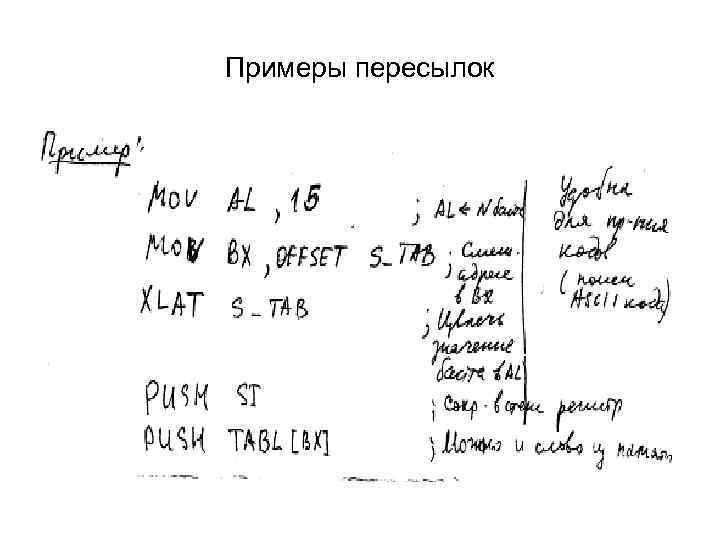 Примеры пересылок
Пример:
MOV AL, 15 ; AL ← N байта
MOV BX, OFFSET S_TAB ; Смещ.
адрес
в BX
XLAT S_TAB ; Извлечь
значение
байта в AL
Удобна
для пр-ния
кодов
(поиск
ASCII кода)
PUSH SI ; Сохр. в стеке регистр
PUSH TABL [BX] ; Можно и слово из памяти